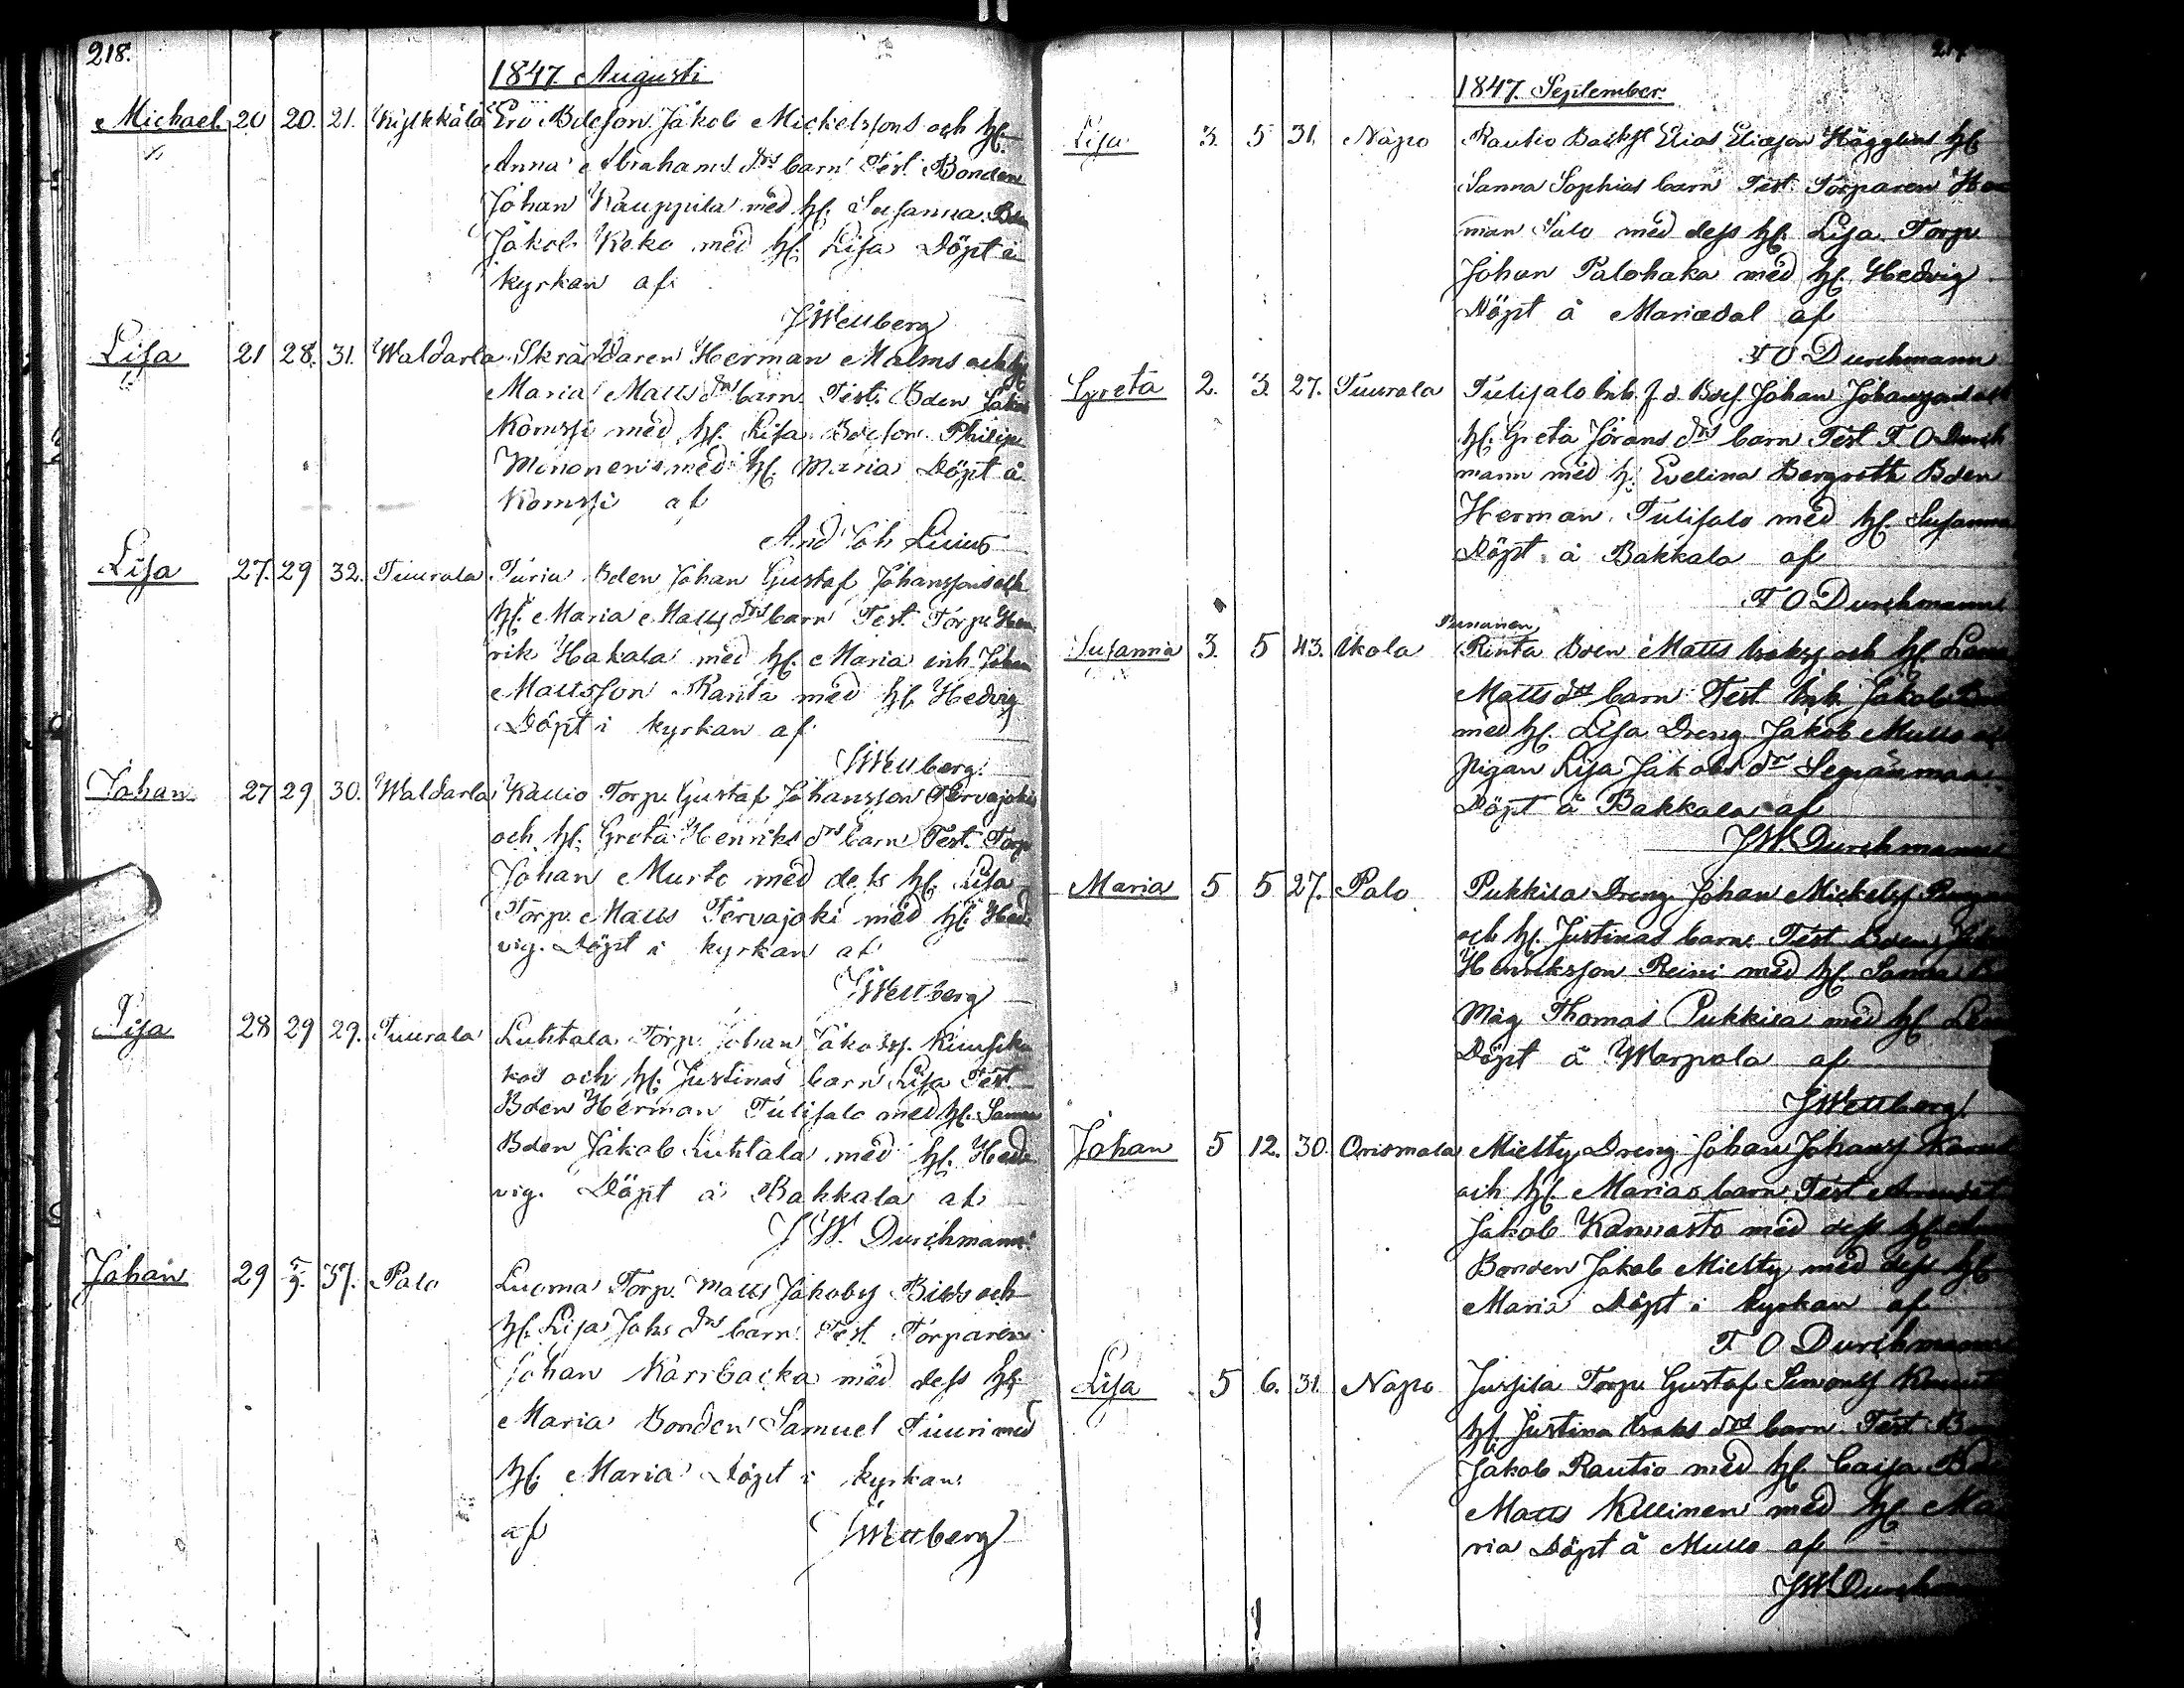 218.
1847. Augusti
Michael. 20 20. 21. Kylkkälä Ero Bdeson Jakob Mickelssons och hf.
Anna Abrahams drs barn Test. Bonden
Johan Kauppila med hf. Susanna. Bden
Jakob Koko med hf. Lisa Döpt i
kyrkan af
JWettberg
Lisa 21 28. 31. Waldarla Skräddaren Herman Malms och hf
Maria Matts drs barn Test. Bden Jakob
Komsi med hf. Lisa Bdeson Philip
Mononen med hf. Maria Döpt å
Komsi af
And Joh Lucius
Lisa 27. 29 32. Tuurala Turia Bden Johan Gustaf Johanssons och
hf. Maria Matts drs barn Test. Torp. Hen
rik Hakala med hf. Maria inh. Johan
Mattsson Ranta med hf Hedvig
Döpt i kyrkan af
JWettberg.
Johan 27 29 30. Waldarla Kallio Torp. Gustaf Johansson Tervajokis
och hf. Greta Henriks drs barn Test. Torp
Johan Murto med dess hf. Lisa
Torp. Matts Tervajoki med hf. Hed
vig. Döpt i kyrkan af
JWettberg
Lisa 28 29 29. Tuurala Luhtala Torp. Johan Jakobss.
kos och hf. Justinas barn Lisa Test.
Bden Herman Tulisalo med hf. Sanna
Bden Jakob Luhtala med hf. Hed
vig. Döpt å Bakkala af
J W. Durchmann.
Johan 29 5/9. 37. Palo Luoma Torp. Matts Jakobss och
hf. Lisa Jaks drs barn Test. Torparen
Johan Karibacka med dess hf.
Maria Bonden Samuel Tuuri med
hf. Maria Döpt i kyrkan
af JWettberg
1847. September.
Lisa 3. 5 31. Napo Rautio Elias Eliasson Hägglins hf.
Sanna Sophias barn Test. Torparen Her
man Salo med dess hf. Lisa. Torp.
Johan Palohaka med hf. Hedvig
Döpt å Mariedal af
F O Durchmann
Greta 2. 3. 27. Tuurala Tulisalo Inh. f d. Johan Johanssons och
hf. Greta Jörans drs barn Test F O Durch
mann med hf. Evelina Bergroth Bden
Herman Tulisalo med hf. Susanna
Döpt å Bakkala af
F O Durchmann
Susanna 3. 5 43. Ikola Rinta Bden Matts Isakss. och hf.
Matts drs barn Test. Inh. Jakob
med hf. Lisa Dreng Jakob Mullo och
pigan Lisa Jakobs dr
Döpt å Bakkala af
JW. Durchmann
Maria 5 5 27. Palo Pukkila Dreng Johan Mickelss
och hf. Justinas barn Test. Bden
Henriksson Reini med hf. Sanna
Måg Thomas Pukkila med hf.
Döpt å Warpala af
JWettberg.
Johan 5 12. 30. Orismala Mielty Dreng Johan Johanss
och hf. Marias barn Test
Jakob Kannasto med dess hf.
Bonden Jakob Mielty med dess hf
Maria Döpt i kyrkan af
F O Durchmann
Lisa 5 6. 31. Napo Jussila Torp. Gustaf Simonss
hf. Justina Isaks drs barn Test.
Jakob Rautio med hf. Caisa
Matts Killinen med hf. Ma
ria Döpt å Mullo af
JW Durchmann